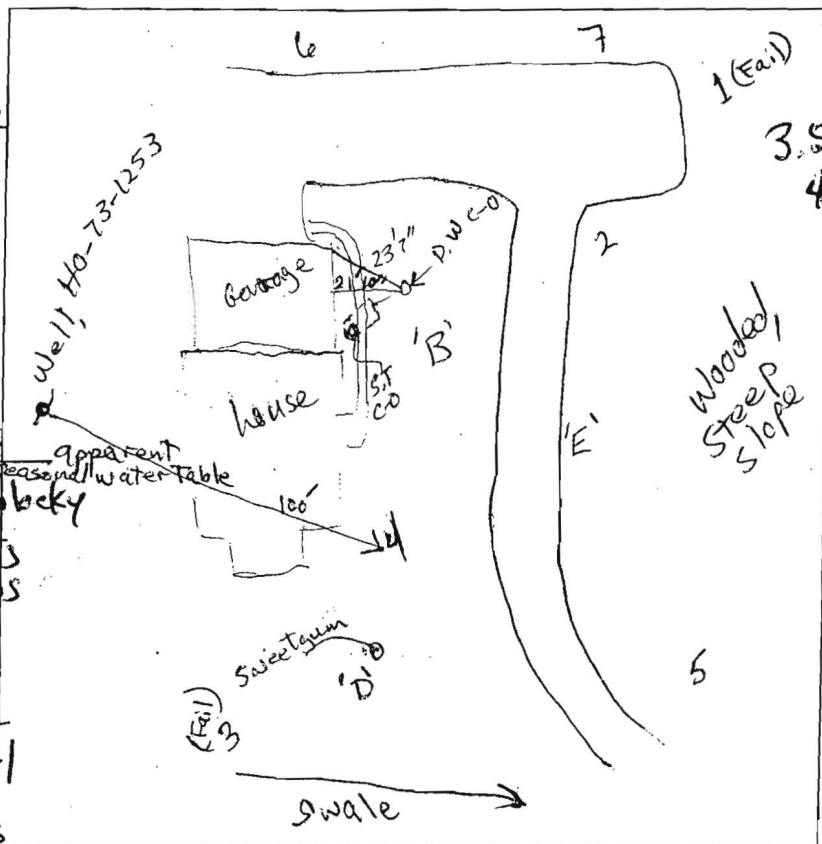 6
7
1 (Fail)
3.5
4
Well, HO-73-1253
23'7"
D.W C-O
2
Garage
21'
'B'
S.T
C-O
house
Wooded,
Steep
slope
'E'
apparent
seasonal water Table
locky
100'
4
s
s
Sweetgum
'D'
5
(Fail)
3
swale